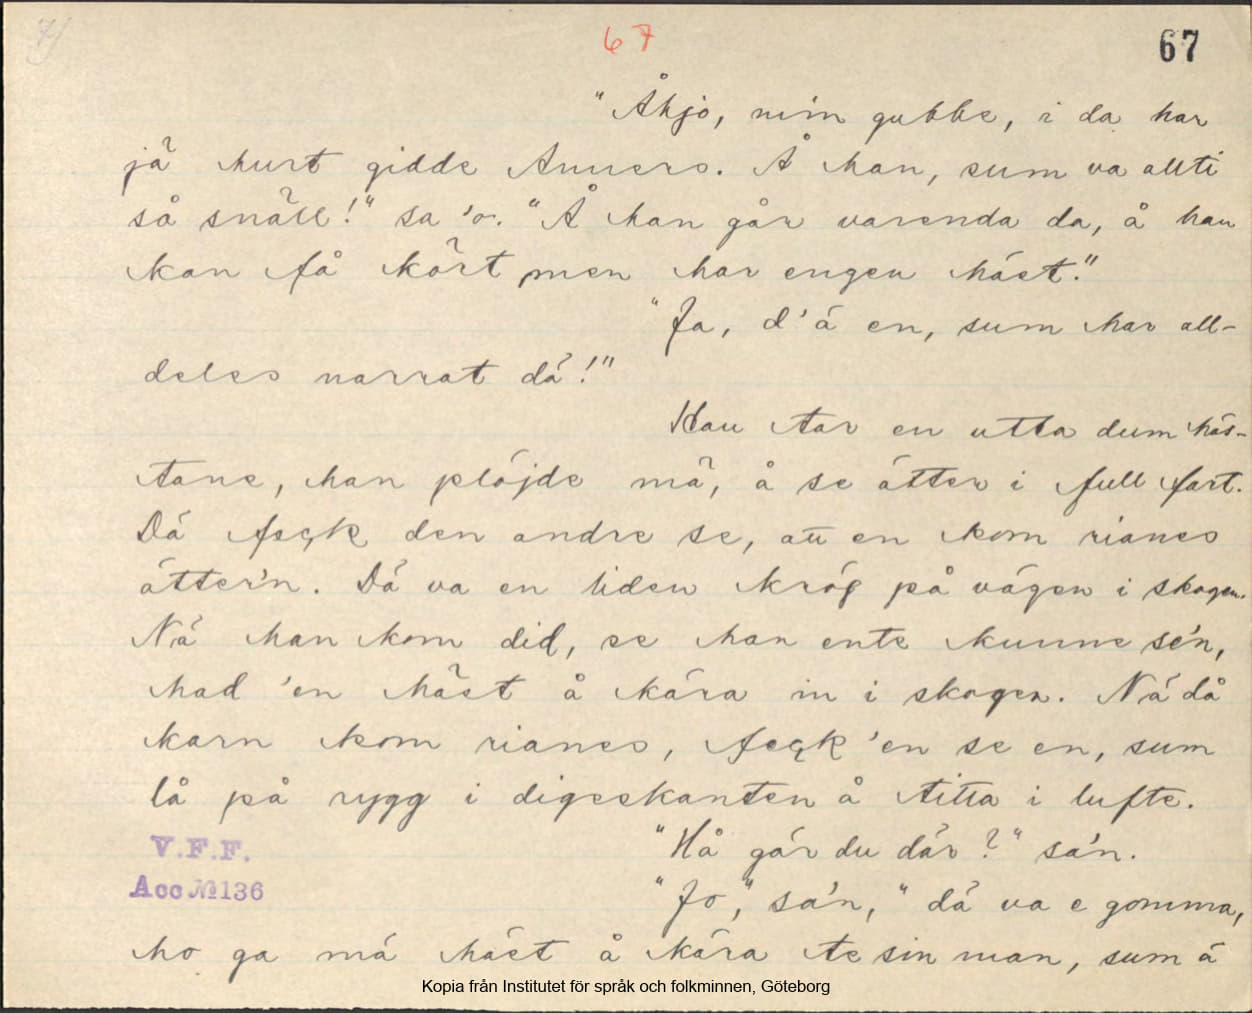 7)
67
67
"Åhjo, mi'n gubbe, i da har
jä hurt gidde Anners. Å han, sum va allti
så snäll!" sa 'o. "Å han går varenda da, å han
kan få kört, men har engen häst."
"Ja, d'ä en, sum har all-
deles narrat dä!"
Han tar en utta dum häs-
tane, han plöjde mä, å se ätter i full fart.
Dä feck den andre se, att en kom rianes
ätter'n. Dä va en liden krög på vägen i skogen.
Nä han kom did, se han ente kunne se'n,
had 'en häst å kära in i skogen. Nä då
karn kom rianes, feck 'en se en, sum
lå på rygg i digeskanten å titta i lufte.
"Hå gär du där?" sa'n.
"Jo," sa'n, "dä va e gomma,
ho ga mä häst å kära te sin man, sum ä
V.F.F.
Acc №136
Kopia från Institutet för språk och folkminnen, Göteborg